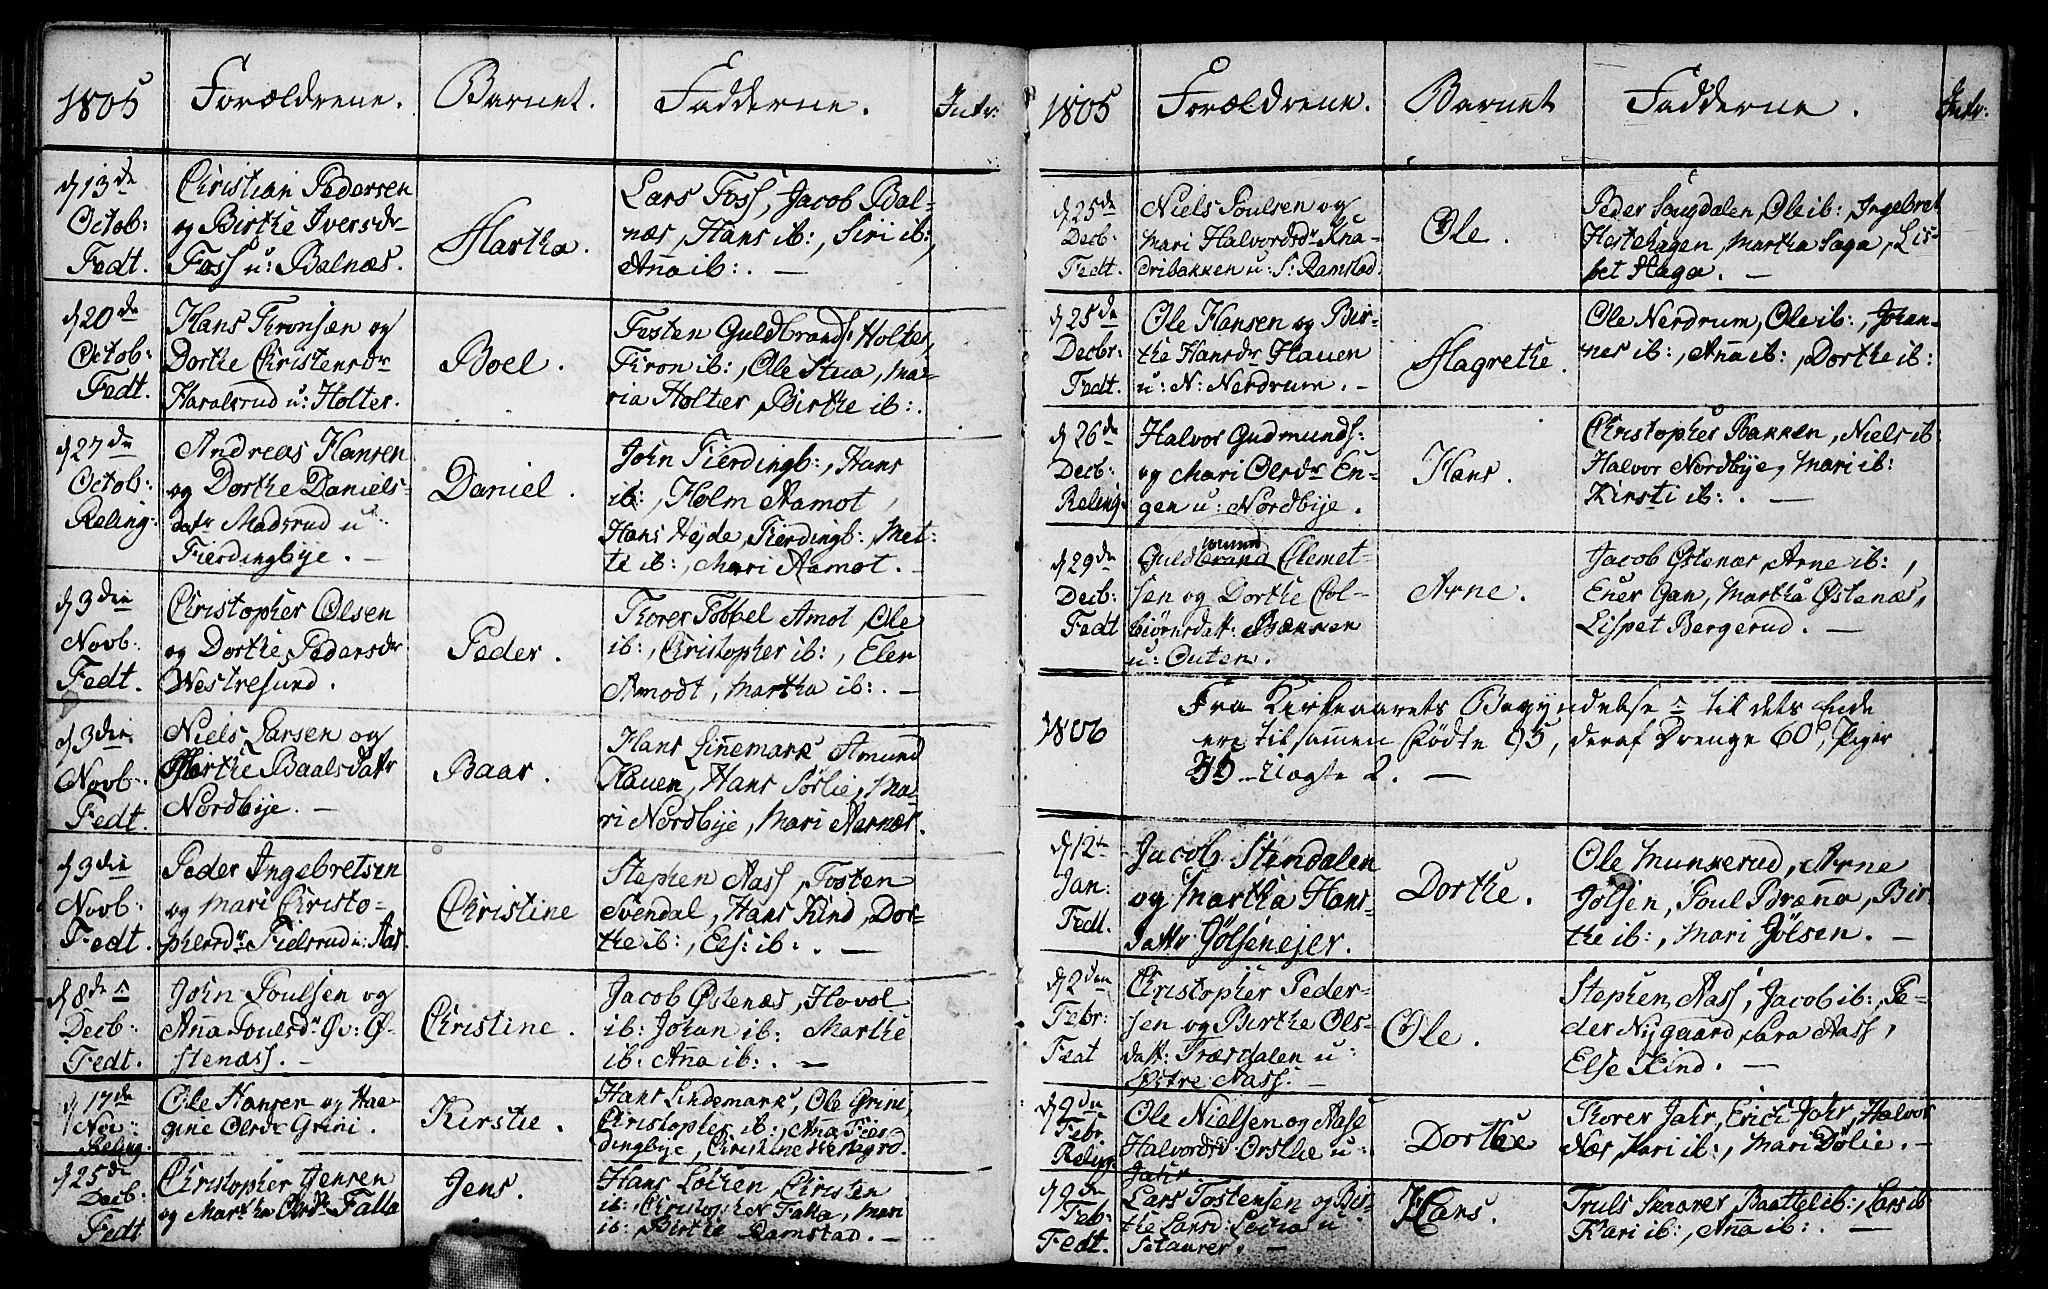 1805 Forældrene. Barnet. Fadderne. Intr:
d 13de Octob: Fedt.
Christian Pedersen
og Birthe Iversdr
Foss u: Balnæs.
Martha.
Lars Foss, Jacob Bal-
næs, Hans ib:, Siri ib:,
Aña ib:. —
d 20de Octob: Fedt.
Hans Thronsen og
Dorthe Christensdr
Haralsrud u: Holter.
Boel.
Tosten Guldbrands: Holter,
Thron ib:, Ole Stua, Ma-
ria Holter, Birthe ib:.
d 27de Octob: Reling:
Andreas Hansen
og Dorthe Daniels-
datr Madsrud u:
Fierdingbye. —
Daniel.
John Fierdingb:, Hans
ib:, Holm Aamot,
Hans Heyde, Fierdingb:, Met-
te ib:, Mari Aamot. —
d 3die Novb: Fedt.
Christopher Olsen
og Dorthe Pedersdr
Westresund.
Peder.
Thorer Tobbel Amot, Ole
ib:, Christopher ib:, Eler
Amodt, Martha ib:. —
d 3die Novb: Fedt.
Niels Larsen og
Marthe Baalsdatr
Nordbye. —
Baar.
Hans Linnemark, Amund
Hauen, Hans Sørlie, Ma-
ri Nordbye, Mari Aarnæs.
d 9die Novb: Fedt.
Peder Ingebretsen
og Mari Christo-
phersdr Fielsrud u: Aas.
Christine
Stephen Aass, Tosten
Svendal, Hans Kind, Dor-
the ib:, Els: ib:. —
d 8de Decb: Fedt.
John Poulsen og
Aña Poulsdr Øv: Ø-
stenæss. —
Christine.
Jacob Østenæs, Hovol
ib: Johan ib: Marthe
ib: Aña ib:. —
d 17de Nov: Reling:
Ole Hansen og Haa-
gine Olsdr Grini.
Kirstie.
Hans Lindemark, Ole Grini,
Christopher ib:, Ana Fier-
dingbye, Christine
d 25de Decb: Fedt
Christopher Jensen
og Martha Olsdr Falla
Jens.
Hans Løken, Christen
ib:, Christopher Falla, Mari
ib:, Birthe Ramstad. —
1805 Forældrene. Barnet Fadderne. Intr:
d 25de Decb: Fedt.
Niels Poulsen og
Mari Halvordsdr Kna-
dribakken u: S: Ramstad.
Ole.
Peder Sougdalen, Ole ib:, Ingebret
Hestehagen, Martha Saga, Lis-
bet Haga. —
d 25de Decbr: Fedt.
Ole Hansen og Bir-
the Hansdr Hauen
u: N: Nerdrum. —
Magrethe.
Ole Nerdrum, Ole ib:, Johan-
nes ib:, Aña ib:, Dorthe ib:
d 26de Decb: Reling:
Halvor Gudmunds:
og Mari Olsdr En-
gen u: Nordbye.
Hans.
Christopher Bakken, Niels ib:
Halvor Nordbye, Mari ib:
Kirsti ib:. —
d 29de Decb: Fedt
Guldbrand Clemet-
sen og Dorthe Col-
biørnsdatt: Bakken
u: Outen.
Arne.
Jacob Østenæs, Arne ib:,
Ener Gan, Martha Østenæs,
Lispet Bergerud. —
1806
Fra Kirkeaarets Begyndelse til dets Ende
ere tilsammen fødte 95, deraf Drenge 60, Piger
35 — Uægte 2. —
d 12te Jan: Fedt.
Jacob Stendalen
og Martha Hans-
dattr Jølsenejer.
Dorthe.
Ole Munkerud, Arne
Jølsen, Poul Bræna, Bir-
the ib:, Mari Jølsen. —
d 2den Febr: Feat
Christopher Peder-
sen og Birthe Ols-
datt: Træsdalen u:
Østre Aass. —
Ole.
Stephen Aass, Jacob ib:, Pe-
der Nygaard, Sara Aass,
Else Kind. —
d 9de Febr Reling:
Ole Nielsen og Aase
Halvordsd: Orsthe u:
Jahr
Dorthe
Thorer Jahr, Erich Jahr, Halvor
Næs, Kari ib:, Mari Dølie. —
d 9de Feb: Fedt.
Lars Tostensen og Bir-
the Larsd: Lecha u:
Schaurer. —
Hans.
Truls Skaarer, Baattel ib:, Lars ib
Kari ib:, Aña ib:. —